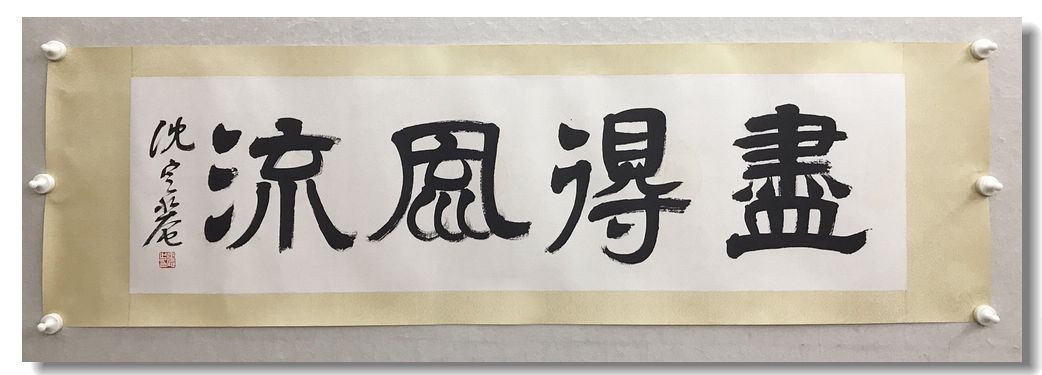 盡得風流
沈定庵